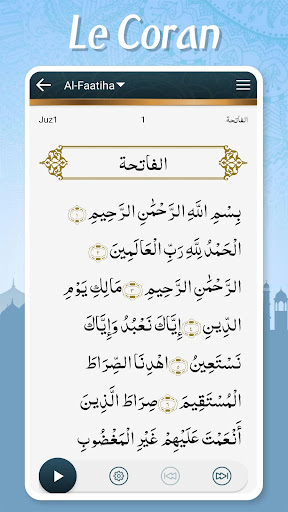 Le Coran
Al-Faatiha
Juz1 1 الفاتحة
الفاتحة
بِسْمِ اللَّهِ الرَّحْمَٰنِ الرَّحِيمِ ١
الْحَمْدُ لِلَّهِ رَبِّ الْعَالَمِينَ ٢
الرَّحْمَٰنِ الرَّحِيمِ ٣ مَالِكِ يَوْمِ
الدِّينِ ٤ إِيَّاكَ نَعْبُدُ وَإِيَّاكَ
نَسْتَعِينُ ٥ اهْدِنَا الصِّرَاطَ
الْمُسْتَقِيمَ ٦ صِرَاطَ الَّذِينَ
أَنْعَمْتَ عَلَيْهِمْ غَيْرِ الْمَغْضُوبِ